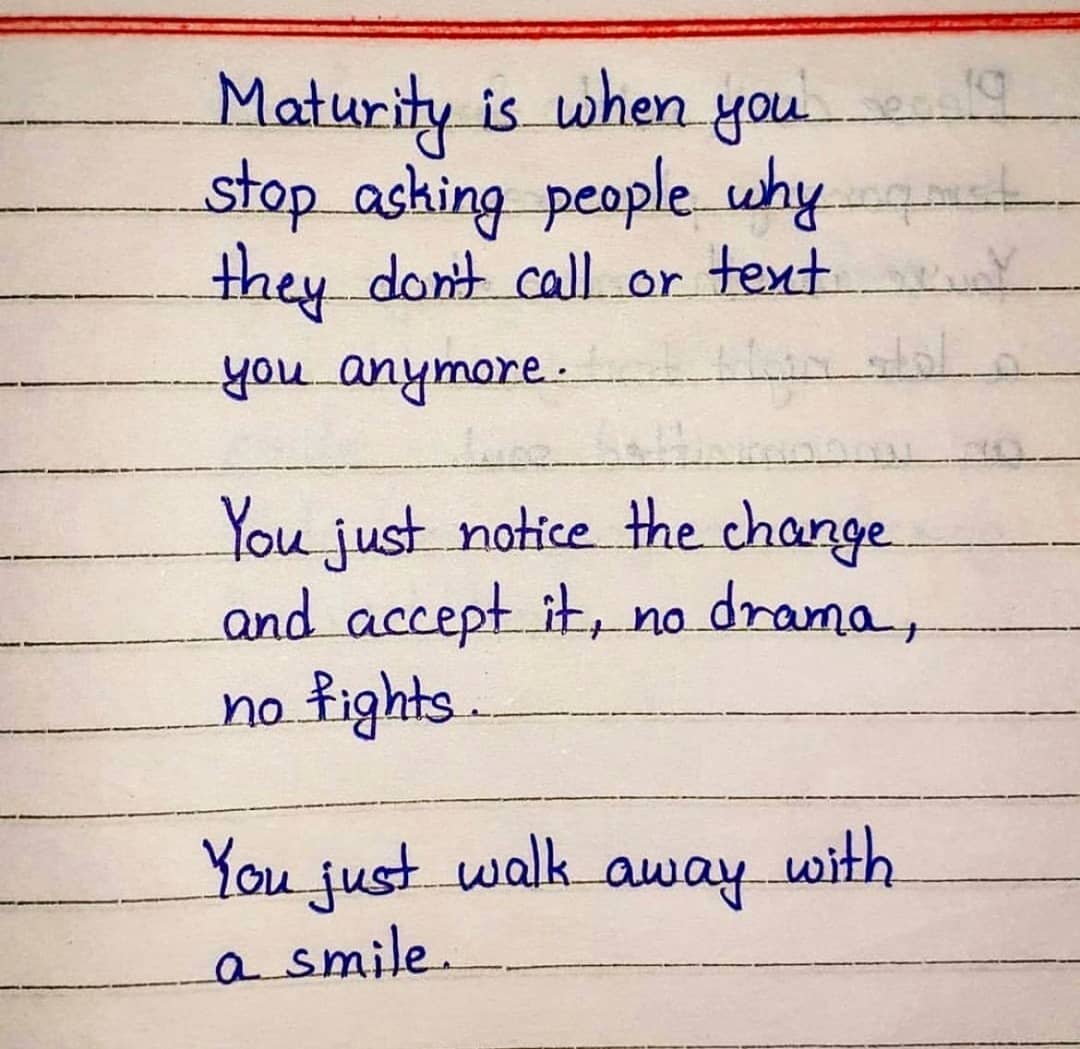 Maturity is when you
stop asking people why
they don't call or text
you anymore.
You just notice the change
and accept it, no drama,
no fights.
You just walk away with
a smile.